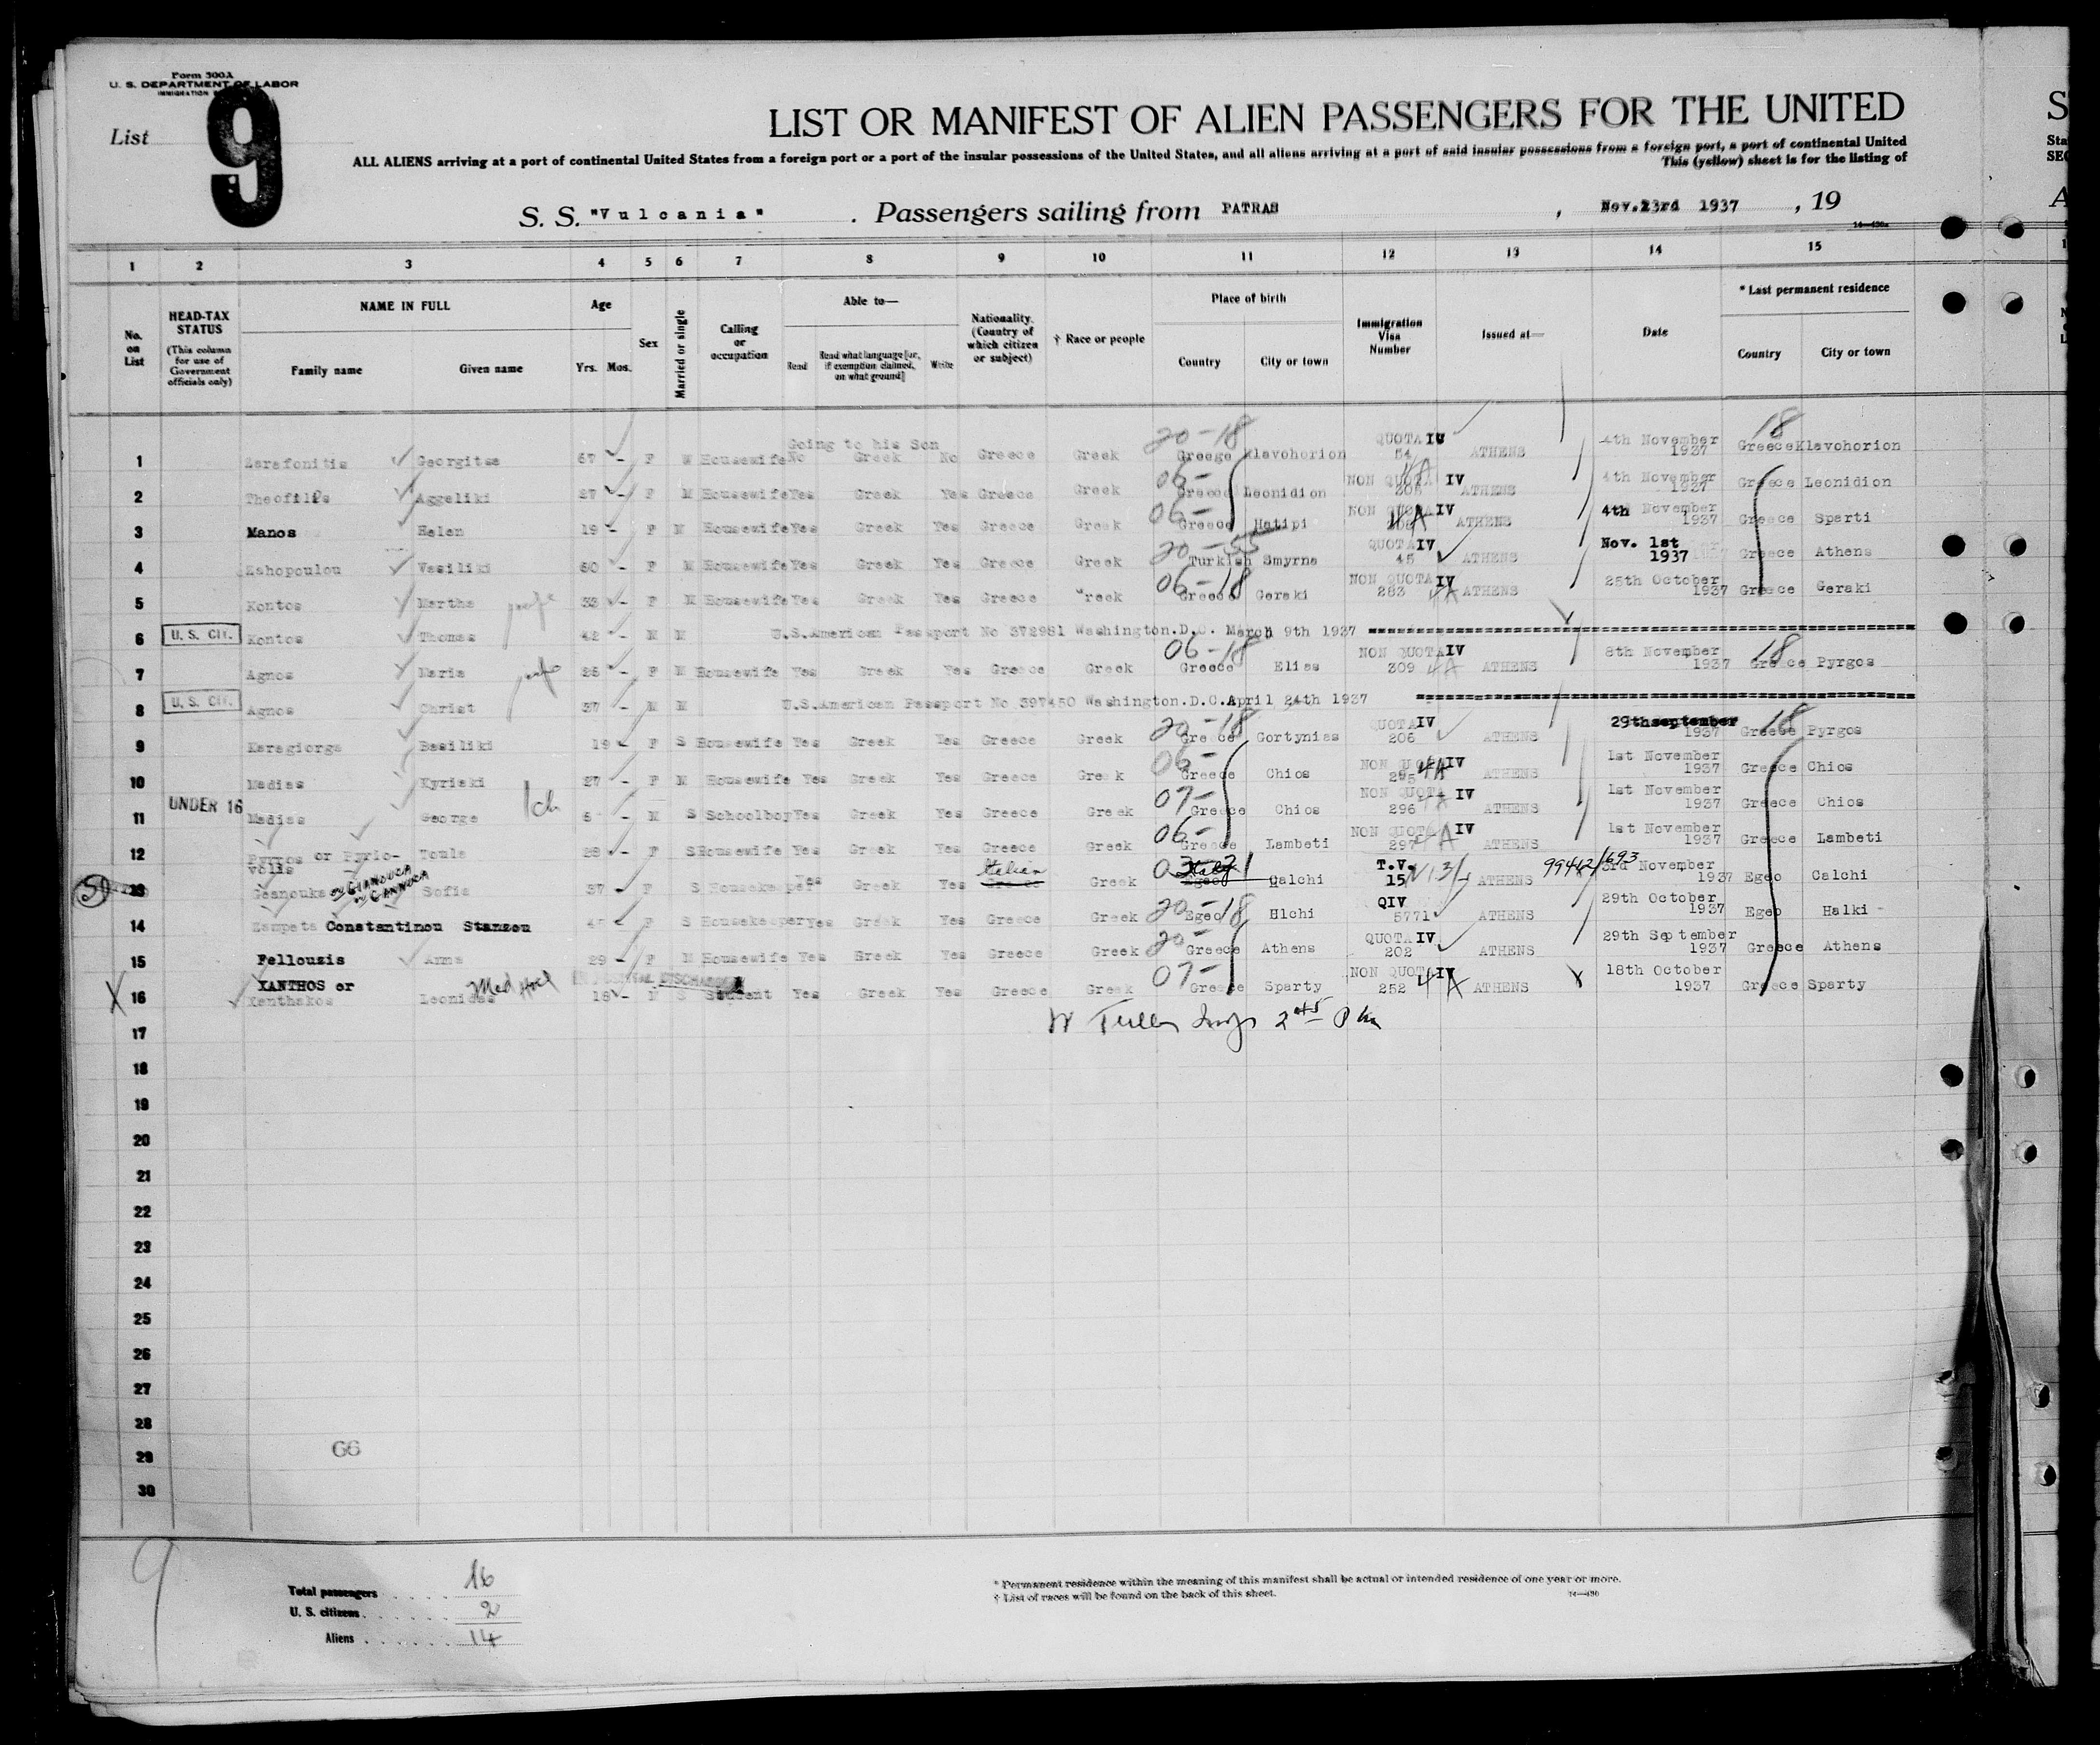 Form 500A
U. S. DEPARTMENT OF LABOR
List 9
LIST OR MANIFEST OF ALIEN PASSENGERS FOR THE UNITED
ALL ALIENS arriving at a port of continental United States from a foreign port or a port of the insular possessions of the United States, and all aliens arriving at a port of said insular possessions from a foreign port, a port of continental United
This (yellow) sheet is for the listing of
S. S. "Vulcania" . Passengers sailing from PATRAS , Nov.23rd 1937 , 19
1 2 3 4 5 6 7 8 9 10 11 12 13 14 15
No. on List
HEAD-TAX STATUS (This column for use of Government officials only)
NAME IN FULL Family name Given name
Age Yrs. Mos.
Sex
Married or single
Calling or occupation
Able to— Read Read what language [or, if exemption claimed, on what ground] Write
Nationality. (Country of which citizen or subject)
† Race or people
Place of birth Country City or town
Immigration Visa Number
Issued at—
Date
* Last permanent residence Country City or town
Going to his Son
1 Zarafonitis Georgitsa 67 - F W Housewife No Greek No Greece Greek 20-18 Greece Klavohorion QUOTA IV 54 ATHENS 4th November 1937 18 Greece Klavohorion
2 Theofilis Aggeliki 27 - F M Housewife Yes Greek Yes Greece Greek 06- Greece Leonidion NON QUOTA IV 205 4A ATHENS 4th November 1937 Greece Leonidion
3 Manos Helen 19 - F M Housewife Yes Greek Yes Greece Greek 06- Greece Hatipi NON QUOTA IV 4A ATHENS 4th November 1937 Greece Sparti
4 Zahopoulou Vasiliki 60 - F M Housewife Yes Greek Yes Greece Greek 20-55 Turkish Smyrna QUOTA IV 45 ATHENS Nov. 1st 1937 Greece Athens
5 Kontos Martha 33 - F M Housewife Yes Greek Yes Greece Greek 06-18 Greece Geraki NON QUOTA IV 283 4A ATHENS 25th October 1937 Greece Geraki
6 U. S. CIT. Kontos Thomas 42 - M M U.S.American Passport No 372981 Washington.D.C. March 9th 1937
7 Agnos Maria 25 - F M Housewife Yes Greek Yes Greece Greek 06-18 Greece Elias NON QUOTA IV 309 4A ATHENS 8th November 1937 18 Greece Pyrgos
8 U. S. CIT. Agnos Christ 37 - M M U.S.American Passport No 397450 Washington.D.C.April 24th 1937
9 Karagiorga Basiliki 19 F S Housewife Yes Greek Yes Greece Greek 20-18 Greece Gortynias QUOTA IV 206 ATHENS 29th september 1937 18 Greece Pyrgos
10 Madias Kyriaki 27 - F M Housewife Yes Greek Yes Greece Greek 06- Greece Chios NON QUOTA IV 295 4A ATHENS 1st November 1937 Greece Chios
11 UNDER 16 Madias George 1ch 6 - M S Schoolboy Yes Greek Yes Greece Greek 07- Greece Chios NON QUOTA IV 296 4A ATHENS 1st November 1937 Greece Chios
12 Pyrros or Pyrio-volis Toula 28 - F S Housewife Yes Greek Yes Greece Greek 06- Greece Lambeti NON QUOTA IV 297 4A ATHENS 1st November 1937 Greece Lambeti
13 Geanouka or GIANOUCA or GANNUCA Sofia 37 - F S Housekeeper Yes Greek Yes Italian Greece Greek Italy Egeo Calchi T.V. 15 ATHENS 99442/693 3rd November 1937 Egeo Calchi
14 Zampeta Constantinou Stanzou 45 F S Housekeeper Yes Greek Yes Greece Greek 20-18 Egeo Hlchi QIV 5771 ATHENS 29th October 1937 Egeo Halki
15 Fellouzis Anna 29 - F M Housewife Yes Greek Yes Greece Greek 20- Greece Athens QUOTA IV 202 ATHENS 29th September 1937 Greece Athens
X 16 XANTHOS or Xanthakos Leonidas Med Hold 16 - M S Student Yes Greek Yes Greece Greek 07- Greece Sparty NON QUOTA IV 252 4A ATHENS 18th October 1937 Greece Sparty
17
18
19
20
21
22
23
24
25
26
27
28
66
29
30
9
Total passengers 16
U. S. citizens 2
Aliens 14
* Permanent residence within the meaning of this manifest shall be actual or intended residence of one year or more.
† List of races will be found on the back of this sheet.